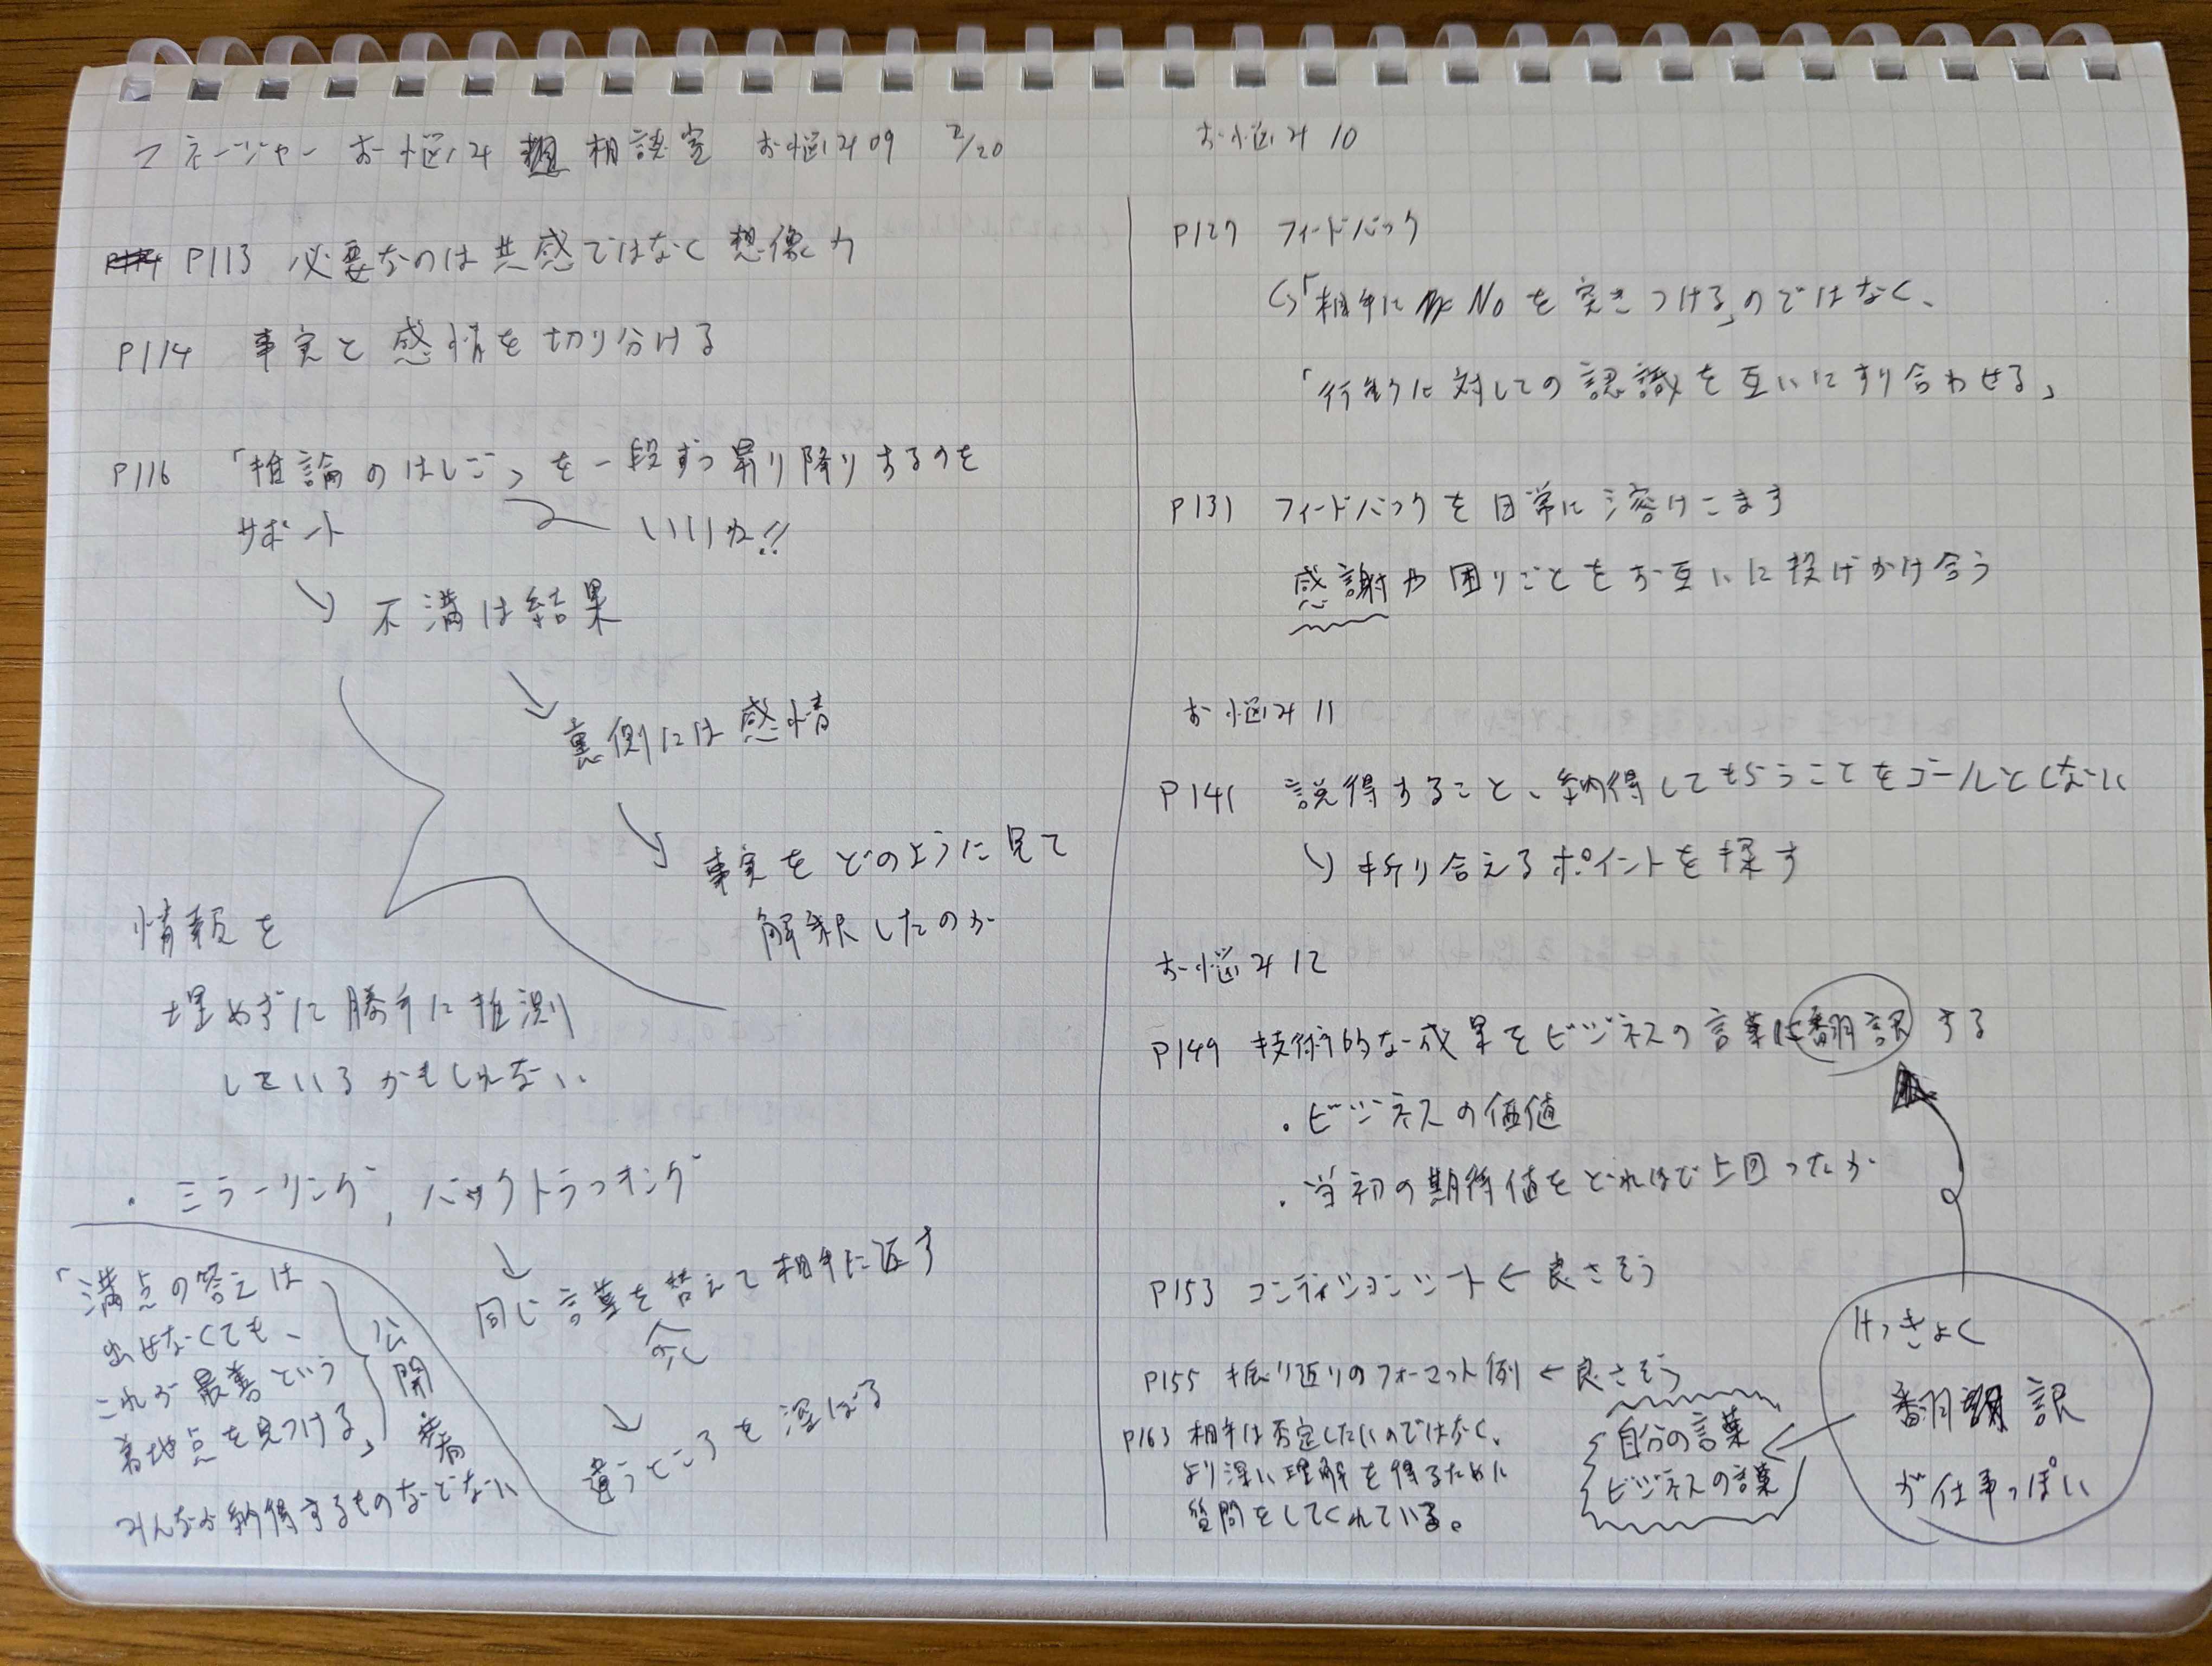 マネージャーお悩み相談室 お悩み09 2/20
P113 必要なのは共感ではなく想像力
P114 事実と感情を切り分ける
P116 「推論のはしご」を一段ずつ昇り降りするのを
サポート
いいね!!
不満は結果
裏側には感情
事実をどのように見て
解釈したのか
情報を
埋めずに勝手に推測
しているかもしれない
・ミラーリング, バックトラッキング
同じ言葉を替えて相手に返す
違うところを深ぼる
「満点の答えは
出せなくても、
これが最善という
着地点を見つける」
公開
みんなが納得するものなどない
お悩み10
P127 フィードバック
「相手にNoを突きつける」のではなく、
「行動に対しての認識を互いにすり合わせる」
P131 フィードバックを日常に溶けこます
感謝や困りごとをお互いに投げかけ合う
お悩み11
P141 説得すること、納得してもらうことをゴールとしない
折り合えるポイントを探す
お悩み12
P149 技術的な成果をビジネスの言葉に翻訳する
・ビジネスの価値
・当初の期待値をどれほどで上回ったか
P153 コンディションシート ← 良さそう
P155 振り返りのフォーマット例 ← 良さそう
P163 相手は否定したいのではなく、
より深い理解を得るために
質問をしてくれている。
自分の言葉
ビジネスの言葉
けっきょく
翻訳
が仕事っぽい